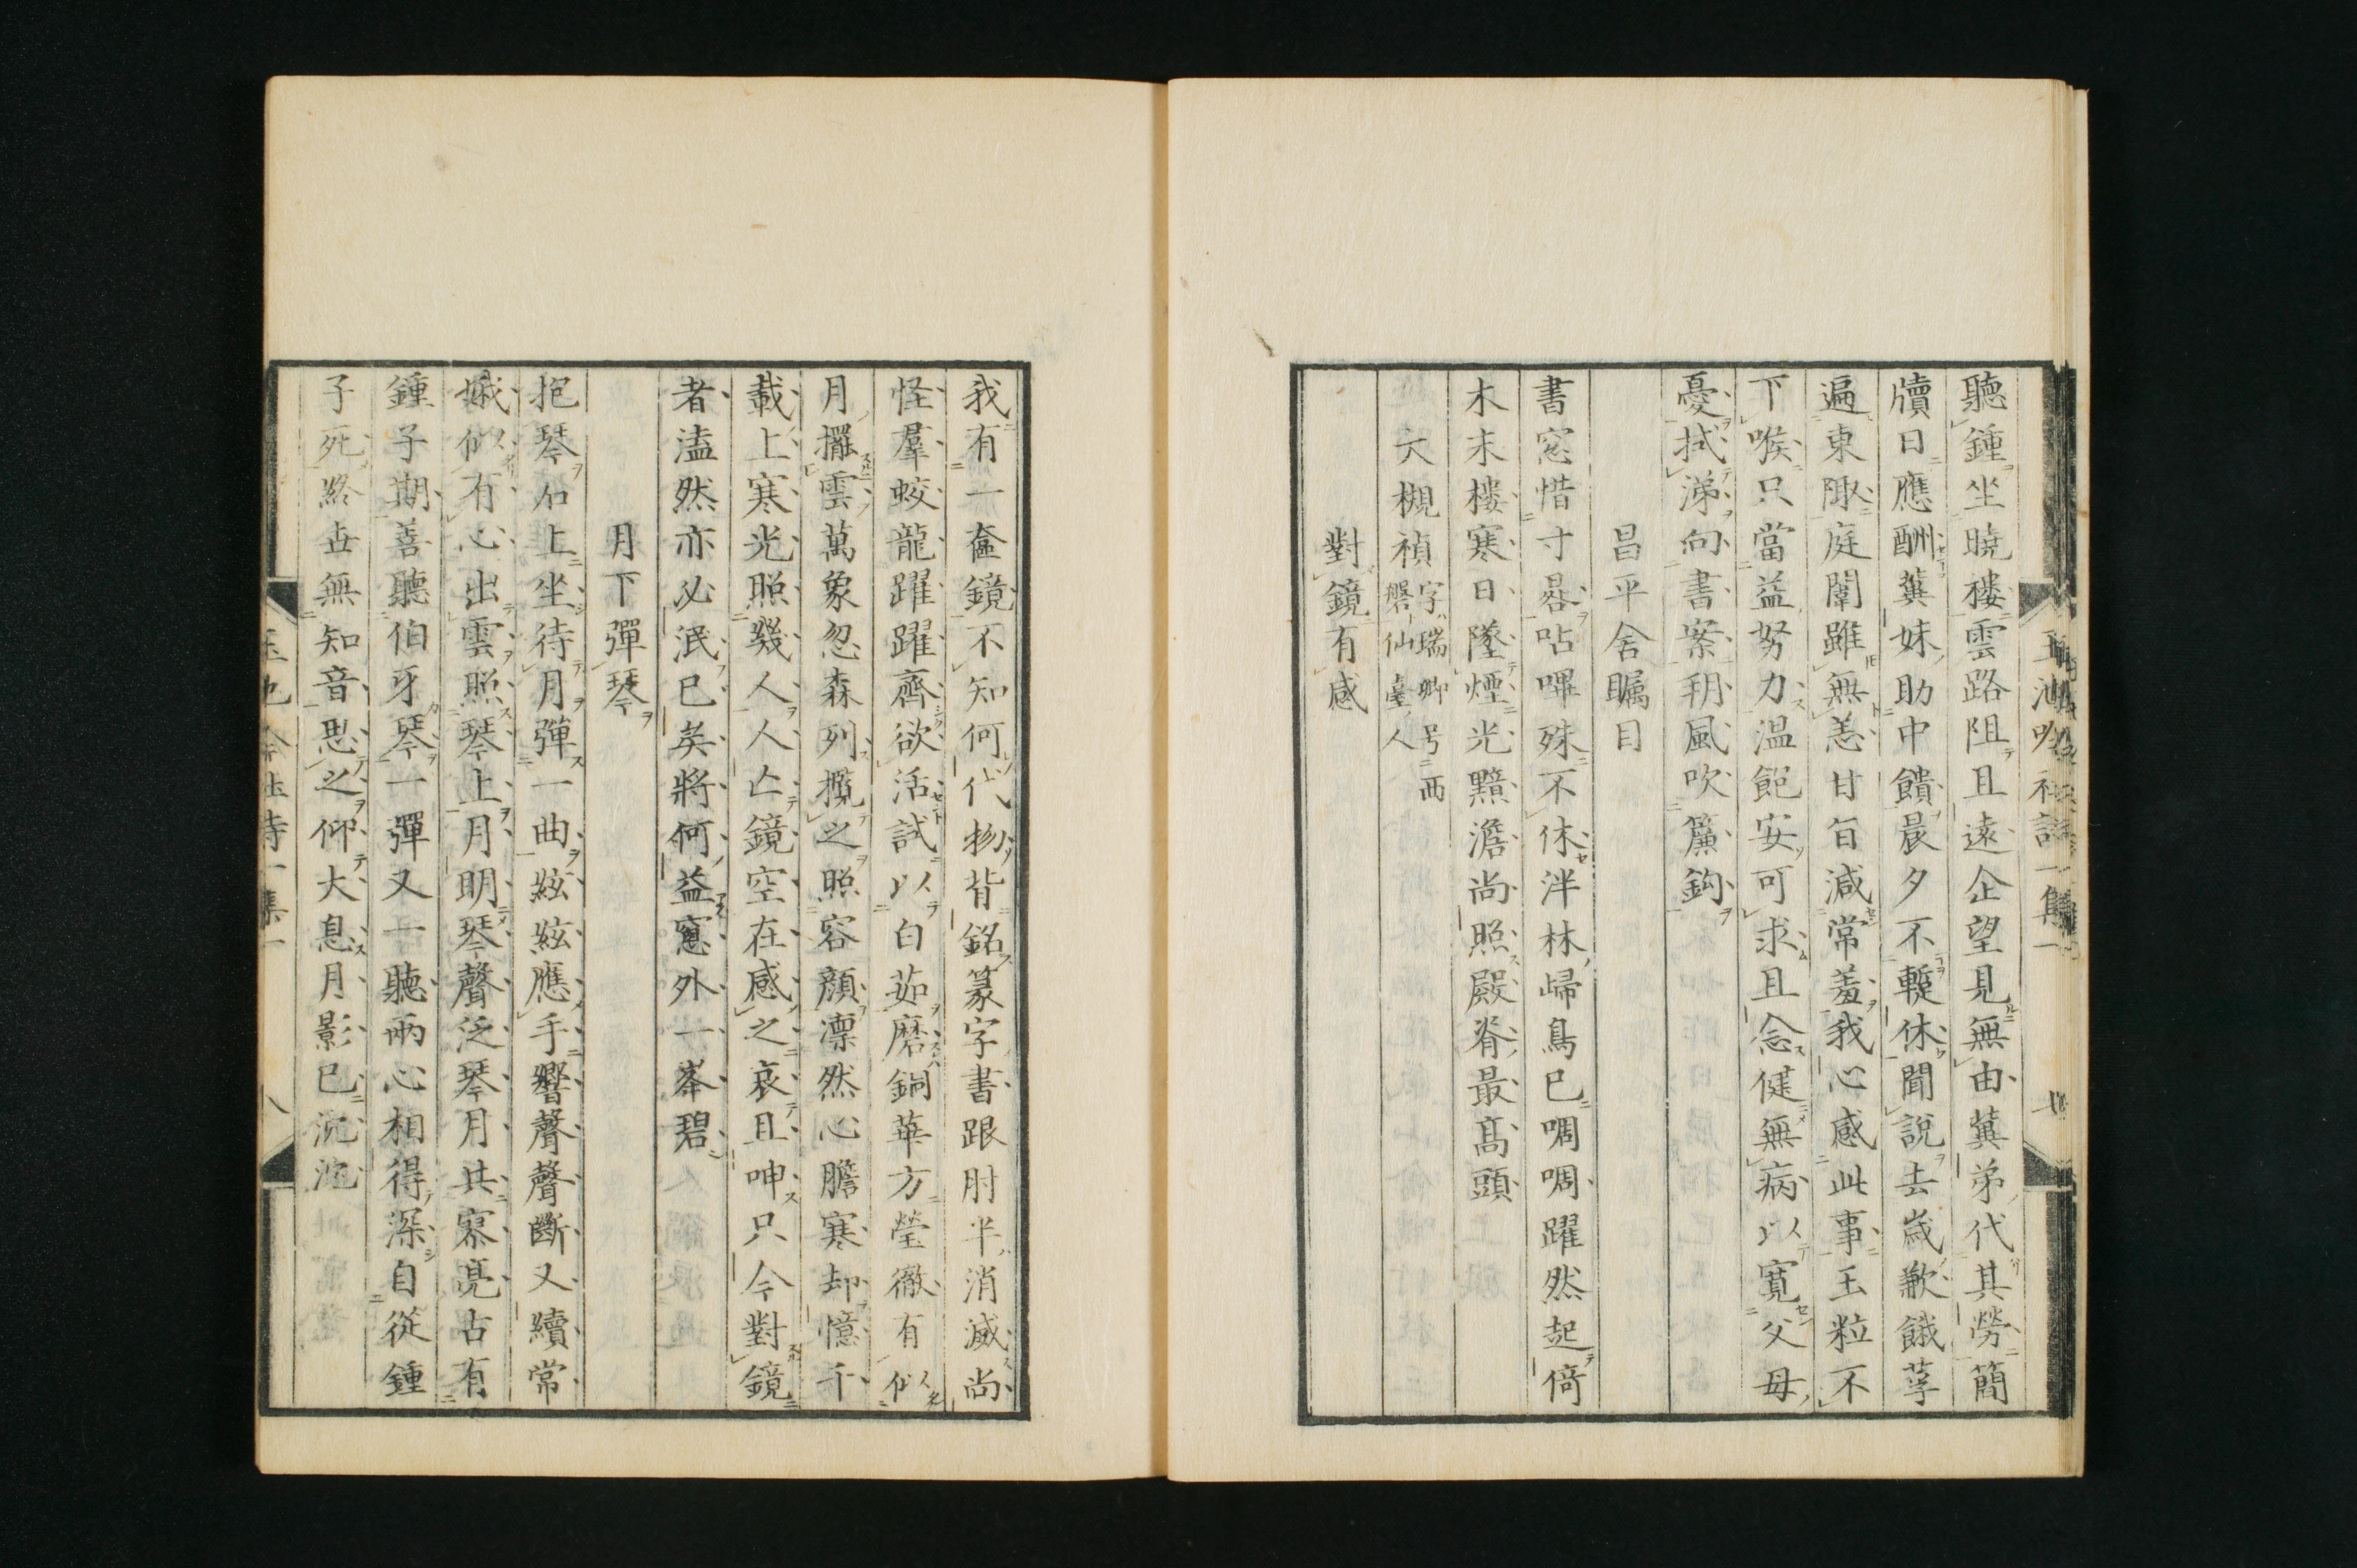 聽鍾坐曉樓雲路阻且遠企望見無由冀弟代其勞簡
牘日應酬冀妹助中饋晨夕不暫休聞說去歲歉餓莩
遍東陬庭闈雖無恙甘旨減常羞我心感此事玉粒不
下喉只當益努力溫飽安可求且念健無病以寬父母
憂拭涕向書案玥風吹簾鈎
昌平舍矚目
書窓惜寸晷呫嗶殊不休泮林歸鳥已啁啁躍然起倚
木末樓寒日墜煙光黯澹尚照殿脊最高頭
大槻禎 字瑞卿号西
磐仙臺人
對鏡有感
我有一奩鏡不知何代物背銘篆字書跟肘半消滅尚
怪羣蛟龍躍躍齊欲活試以白茹磨銅華方瑩徹有似
月擺雲萬象忽森列攬之照容顏凛然心膽寒却憶千
載上寒光照幾人人亡鏡空在感之哀且呻只今對鏡
者溘然亦必泯已矣將何益窓外一峯碧
月下彈琴
抱琴石上坐待月彈一曲絃絃應手響聲聲斷又續常
娥似有心出雲照琴上月明琴聲泛琴月共寥亮古有
鍾子期善聽伯牙琴一彈又一聽兩心相得深自從鍾
子死終世無知音思之仰大息月影已沉沉
玉池吟社詩一集一 七
玉池吟社詩一集一 八